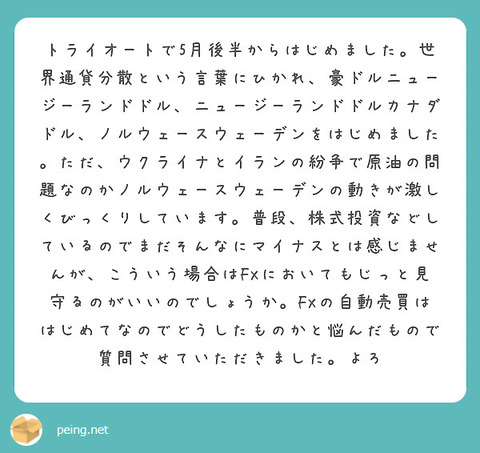 トライオートで5月後半からはじめました。世
界通貨分散という言葉にひかれ、豪ドルニュー
ジーランドドル、ニュージーランドドルカナダ
ドル、ノルウェースウェーデンをはじめました
。ただ、ウクライナとイランの紛争で原油の問
題なのかノルウェースウェーデンの動きが激し
くびっくりしています。普段、株式投資などし
ているのでまだそんなにマイナスとは感じませ
んが、こういう場合はFxにおいてもじっと見
守るのがいいのでしょうか。Fxの自動売買は
はじめてなのでどうしたものかと悩んだもので
質問させていただきました。よろ
peing.net